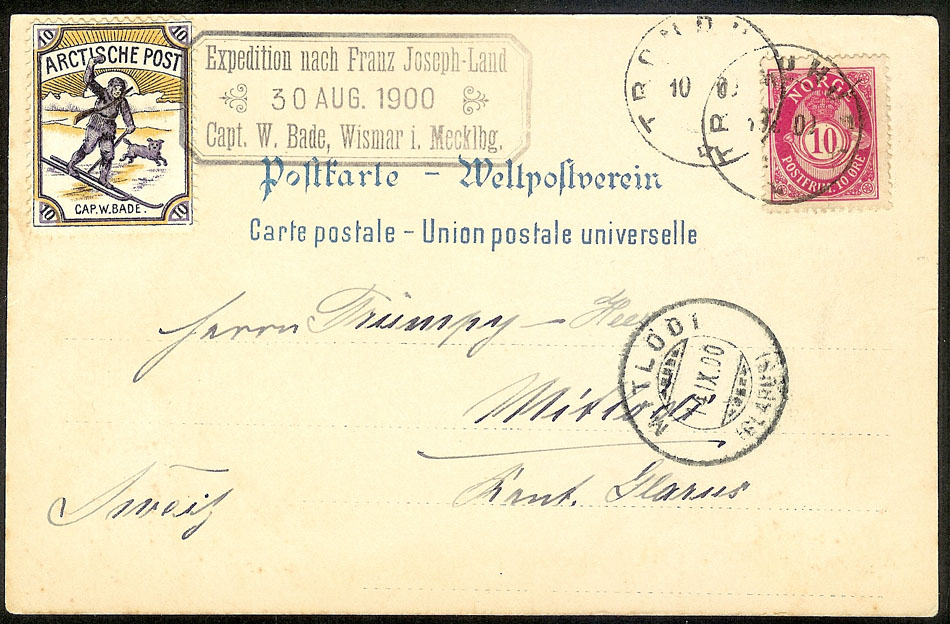 10 10
ARCTISCHE POST
CAP. W. BADE.
10 10
Expedition nach Franz Joseph-Land
30 AUG. 1900
Capt. W. Bade, Wismar i. Mecklbg.
TRONDHJ
10
NORGE
10
POSTFRIM. 10 ØRE
Postkarte – Weltpostverein
Carte postale – Union postale universelle
Herrn Trümpy – Heer
MITLÖDI
IX.00
(GLARUS)
Mitlödi
Kant. Glarus
Sweitz